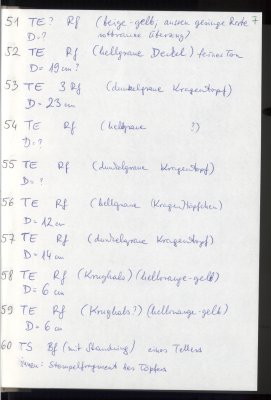 51 TE? Rf (beige-gelb; aussen geringe Reste 7
D=? rotbrauner Überzug)
52 TE Rf (hellgraue Deckel) feiner Ton
D= 19 cm?
53 TE 3 Rf (dunkelgraue Kragentopf)
D= 23 cm
54 TE Rf (hellgraue ?)
D=?
55 TE Rf (dunkelgraue Kragentopf)
D=?
56 TE Rf (hellgraue (Kragen)töpfchen)
D= 12 cm
57 TE Rf (dunkelgraue Kragentopf)
D= 14 cm
58 TE Rf (Krughals) (hellorange-gelb)
D= 6 cm
59 TE Rf (Krughals?) (hellorange-gelb)
D= 6 cm
60 TS Bf (mit Standring) eines Tellers
innen: Stempelfragment des Töpfers